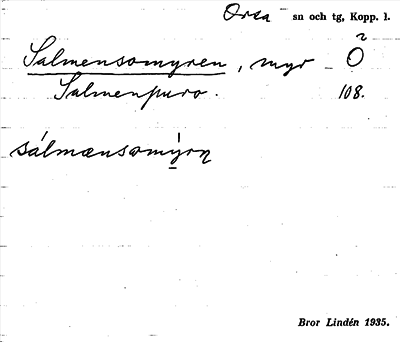 Orsa sn och tg, Kopp. l.
Salmensomyren, myr - Ö
Salmenpuro. 108.
sálmænsomýrn
Bror Lindén 1935.